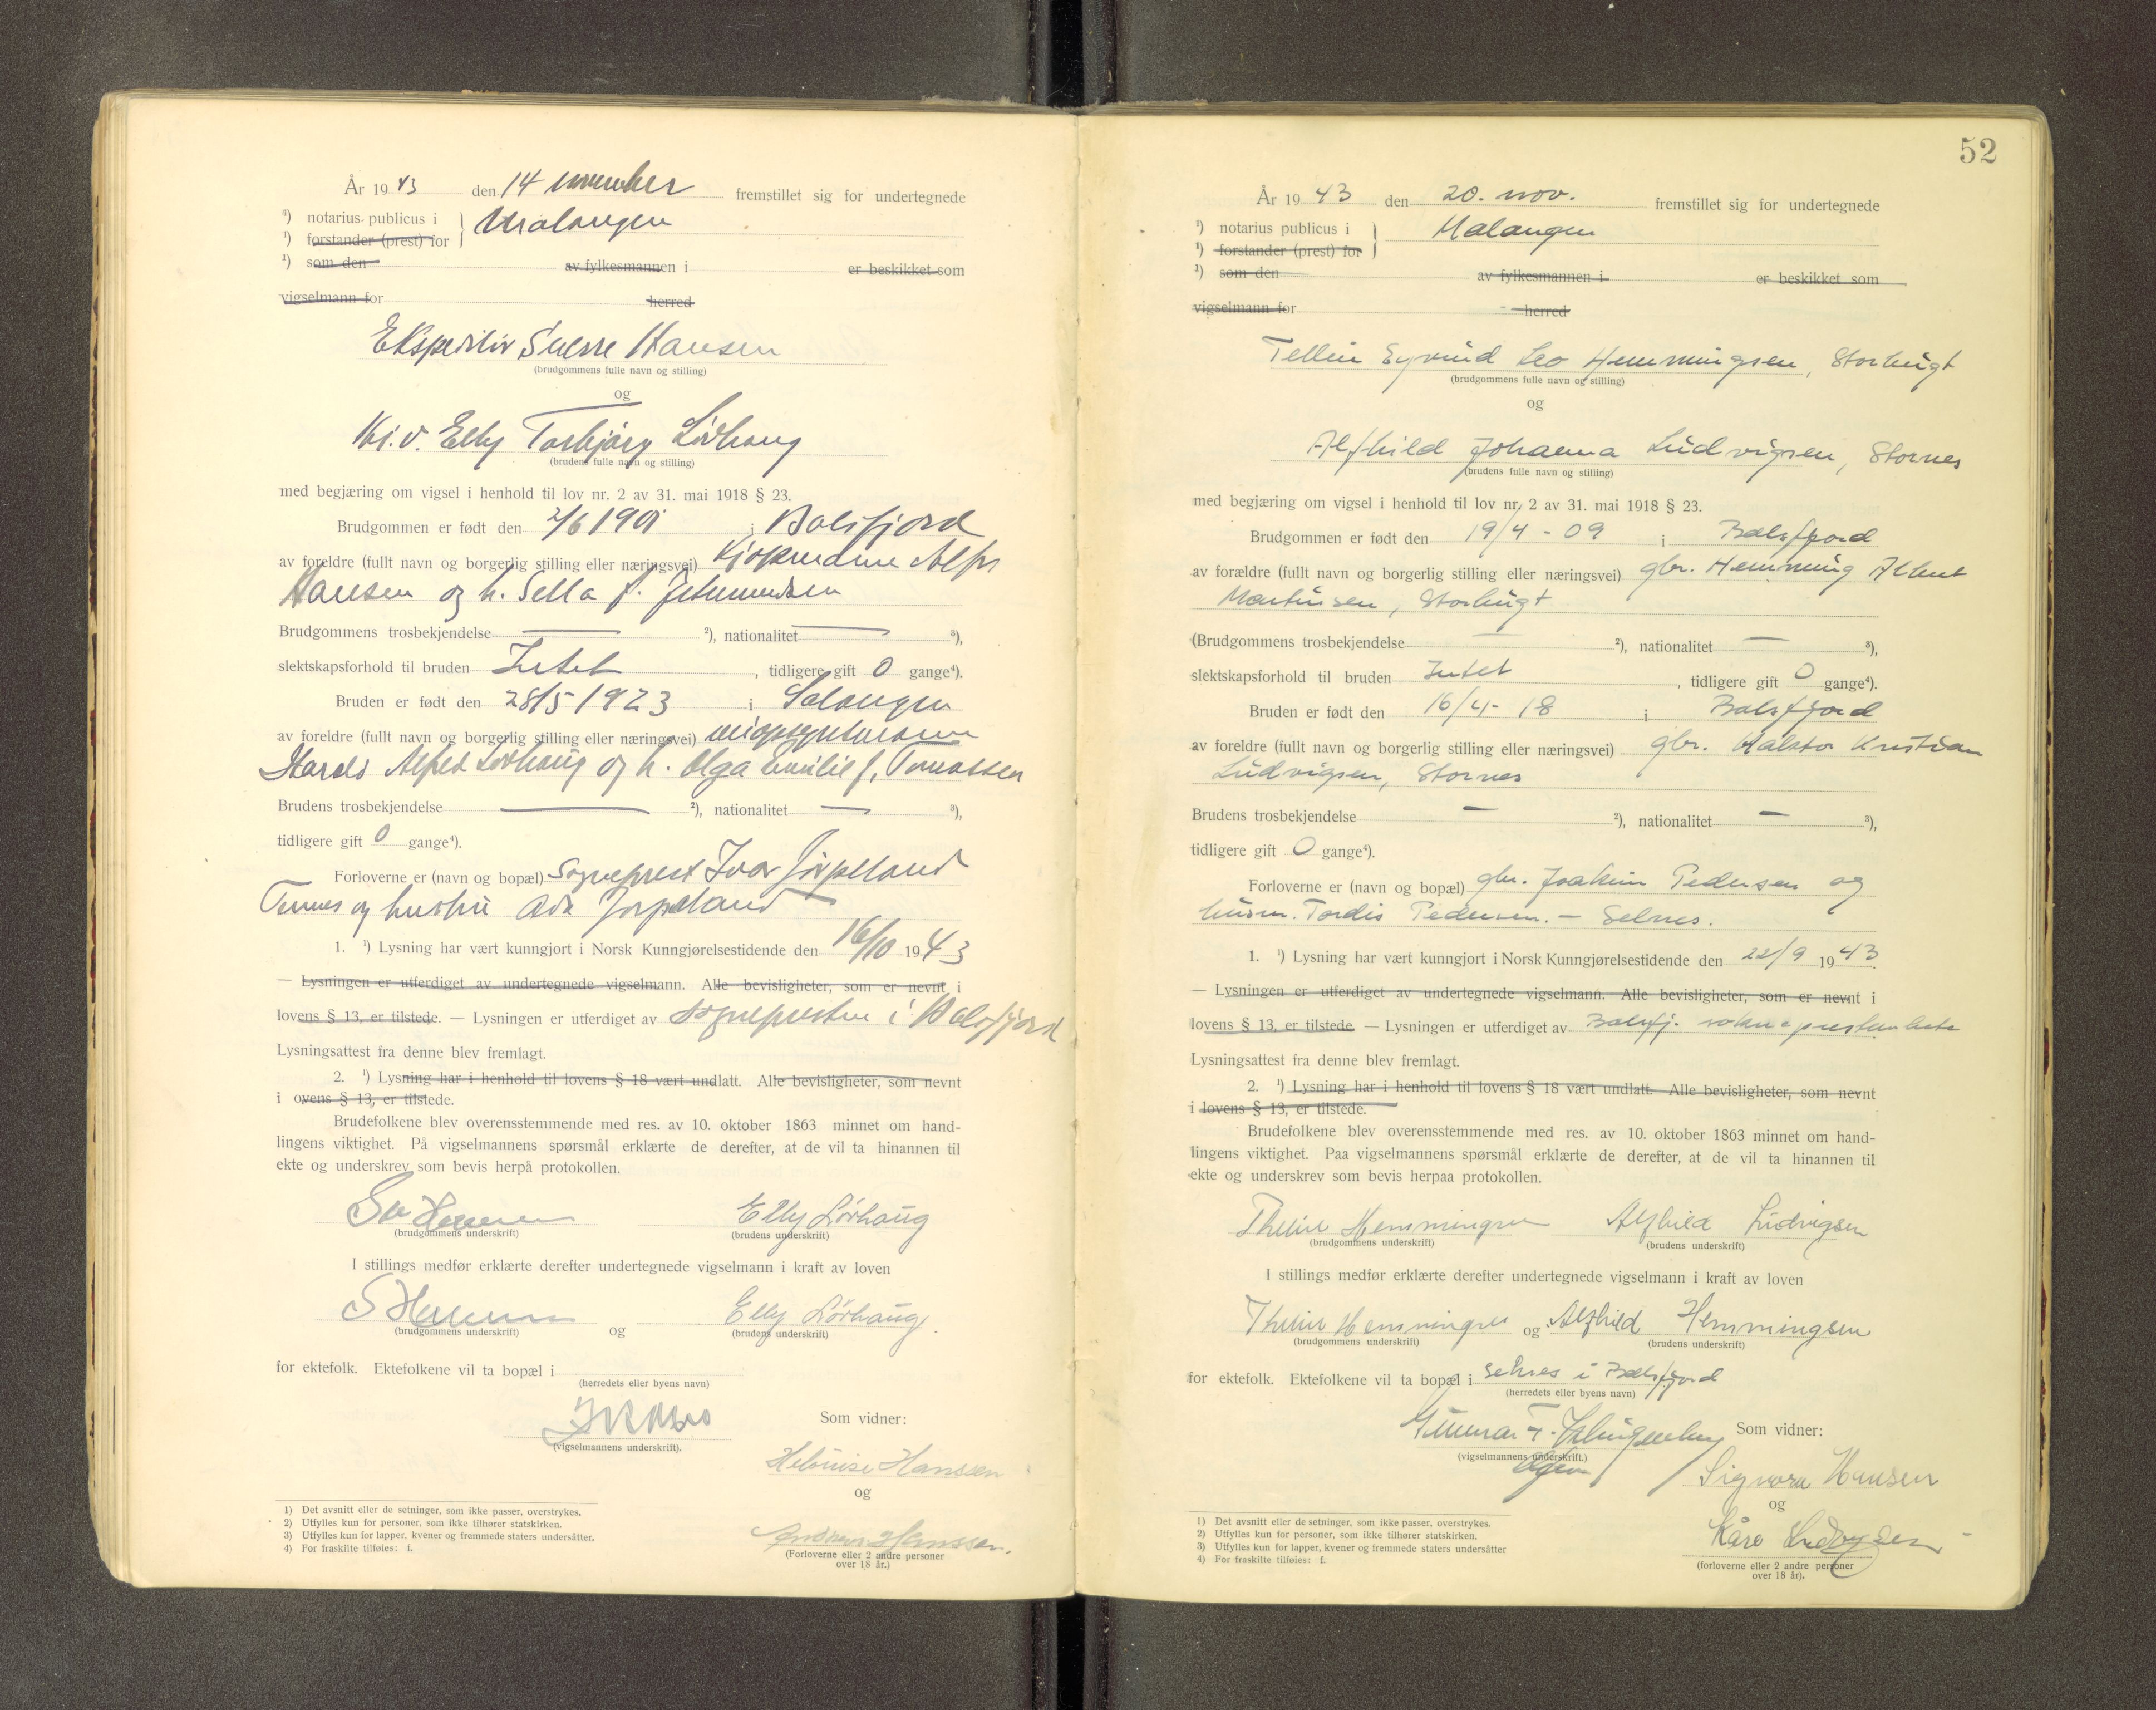 År 1943 den 14 november fremstillet sig for undertegnede
¹) notarius publicus i } Malangen
¹) forstander (prest) for
¹) som den av fylkesmannen i er beskikket som
vigselmann for herred
Ekspeditør Sverre Hansen
(brudgommens fulle navn og stilling)
og
Elly Torbjørg Lørhaug
(brudens fulle navn og stilling)
med begjæring om vigsel i henhold til lov nr. 2 av 31. mai 1918 § 23.
Brudgommen er født den 2/6 1901 i Balsfjord
av foreldre (fullt navn og borgerlig stilling eller næringsvei) kjøpmann Alfr
Hansen og h. Sella f.
Brudgommens trosbekjendelse — ²), nationalitet — ³),
slektskapsforhold til bruden Intet, tidligere gift 0 gange⁴).
Bruden er født den 28/5 1923 i Salangen
av foreldre (fullt navn og borgerlig stilling eller næringsvei)
Harald Alfred Lørhaug og h. Olga Emilie f. Tomassen
Brudens trosbekjendelse — ²), nationalitet — ³),
tidligere gift 0 gange⁴).
Forloverne er (navn og bopæl) Sogneprest Ivar Jørpeland
Tennes og hustru Ada Jørpeland
1. ¹) Lysning har vært kunngjort i Norsk Kunngjørelsestidende den 16/10 1943
— Lysningen er utferdiget av undertegnede vigselmann. Alle bevisligheter, som er nevnt i
lovens § 13, er tilstede. — Lysningen er utferdiget av sognepresten i Balsfjord
Lysningsattest fra denne blev fremlagt.
2. ¹) Lysning har i henhold til lovens § 18 vært undlatt. Alle bevisligheter, som nevnt
i ovens § 13, er tilstede.
Brudefolkene blev overensstemmende med res. av 10. oktober 1863 minnet om hand-
lingens viktighet. På vigselmannens spørsmål erklærte de derefter, at de vil ta hinannen til
ekte og underskrev som bevis herpå protokollen.
Sv Hansen Elly Lørhaug
(brudgommens underskrift) (brudens underskrift)
I stillings medfør erklærte derefter undertegnede vigselmann i kraft av loven
S Hansen og Elly Lørhaug.
(brudgommens underskrift) (brudens underskrift)
for ektefolk. Ektefolkene vil ta bopæl i
(herredets eller byens navn)
Som vidner:
(vigselmannens underskrift).
Hansen
og
Hanssen.
(Forloverne eller 2 andre personer
over 18 år.)
1) Det avsnitt eller de setninger, som ikke passer, overstrykes.
2) Utfylles kun for personer, som ikke tilhører statskirken.
3) Utfylles kun for lapper, kvener og fremmede staters undersåtter.
4) For fraskilte tilføies: f.
52
År 1943 den 20. nov. fremstillet sig for undertegnede
¹) notarius publicus i } Malangen
¹) forstander (prest) for
¹) som den av fylkesmannen i er beskikket som
vigselmann for herred
Tellin Eyvind Leo Hemmingsen, Storbugt
(brudgommens fulle navn og stilling)
og
Alfhild Johanna Ludvigsen, Stornes
(brudens fulle navn og stilling)
med begjæring om vigsel i henhold til lov nr. 2 av 31. mai 1918 § 23.
Brudgommen er født den 19/4 - 09 i Balsfjord
av forældre (fullt navn og borgerlig stilling eller næringsvei) gbr. Hemming Albert
Martinsen, Storbugt
(Brudgommens trosbekjendelse — ²), nationalitet — ³),
slektskapsforhold til bruden Intet, tidligere gift 0 gange⁴).
Bruden er født den 16/4- 18 i Balsfjord
av foreldre (fullt navn og borgerlig stilling eller næringsvei) gbr. Halvor Kristian
Ludvigsen, Stornes
Brudens trosbekjendelse — ²), nationalitet — ³),
tidligere gift 0 gange⁴).
Forloverne er (navn og bopæl) gbr. Joakim Pedersen og
husm. Tordis Pedersen. — Selnes.
1. ¹) Lysning har vært kunngjort i Norsk Kunngjørelsestidende den 22/9 1943.
— Lysningen er utferdiget av undertegnede vigselmann. Alle bevisligheter, som er nevnt i
lovens § 13, er tilstede — Lysningen er utferdiget av Balsfj.
Lysningsattest fra denne blev fremlagt.
2. ¹) Lysning har i henhold til lovens § 18 vært undlatt. Alle bevisligheter, som nevnt
i lovens § 13, er tilstede.
Brudefolkene blev overensstemmende med res. av 10. oktober 1863 minnet om hand-
lingens viktighet. Paa vigselmannens spørsmål erklærte de derefter, at de vil ta hinannen til
ekte og underskrev som bevis herpaa protokollen.
Hemmingsen Alfhild Ludvigsen
(brudgommens underskrift) (brudens underskrift)
I stillings medfør erklærte derefter undertegnede vigselmann i kraft av loven
Hemmingsen og Alfhild Hemmingsen
(brudgommens underskrift) (brudens underskrift)
for ektefolk. Ektefolkene vil ta bopæl i Selnes i Balsfjord
(herredets eller byens navn)
Gunnar Som vidner:
(vigselmannens underskrift.)
Signora Hansen
og
Kåre Ludvigsen
(forloverne eller 2 andre personer
over 18 år).
1) Det avsnitt eller de setninger, som ikke passer, overstrykes.
2) Utfylles kun for personer, som ikke tilhører statskirken.
3) Utfylles kun for lapper, kvener og fremmede staters undersåtter
4) For fraskilte tilføies: f.